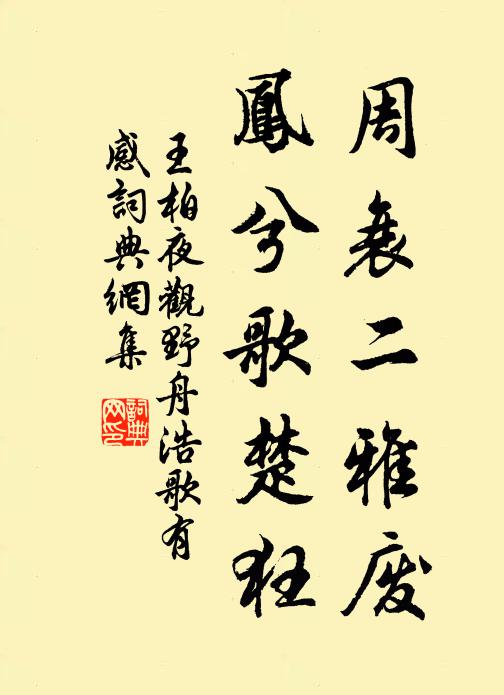 周衰二雅废
鳳兮歌楚狂
王柏夜觀野舟浩歌有
感詞典網集
詞典
网印